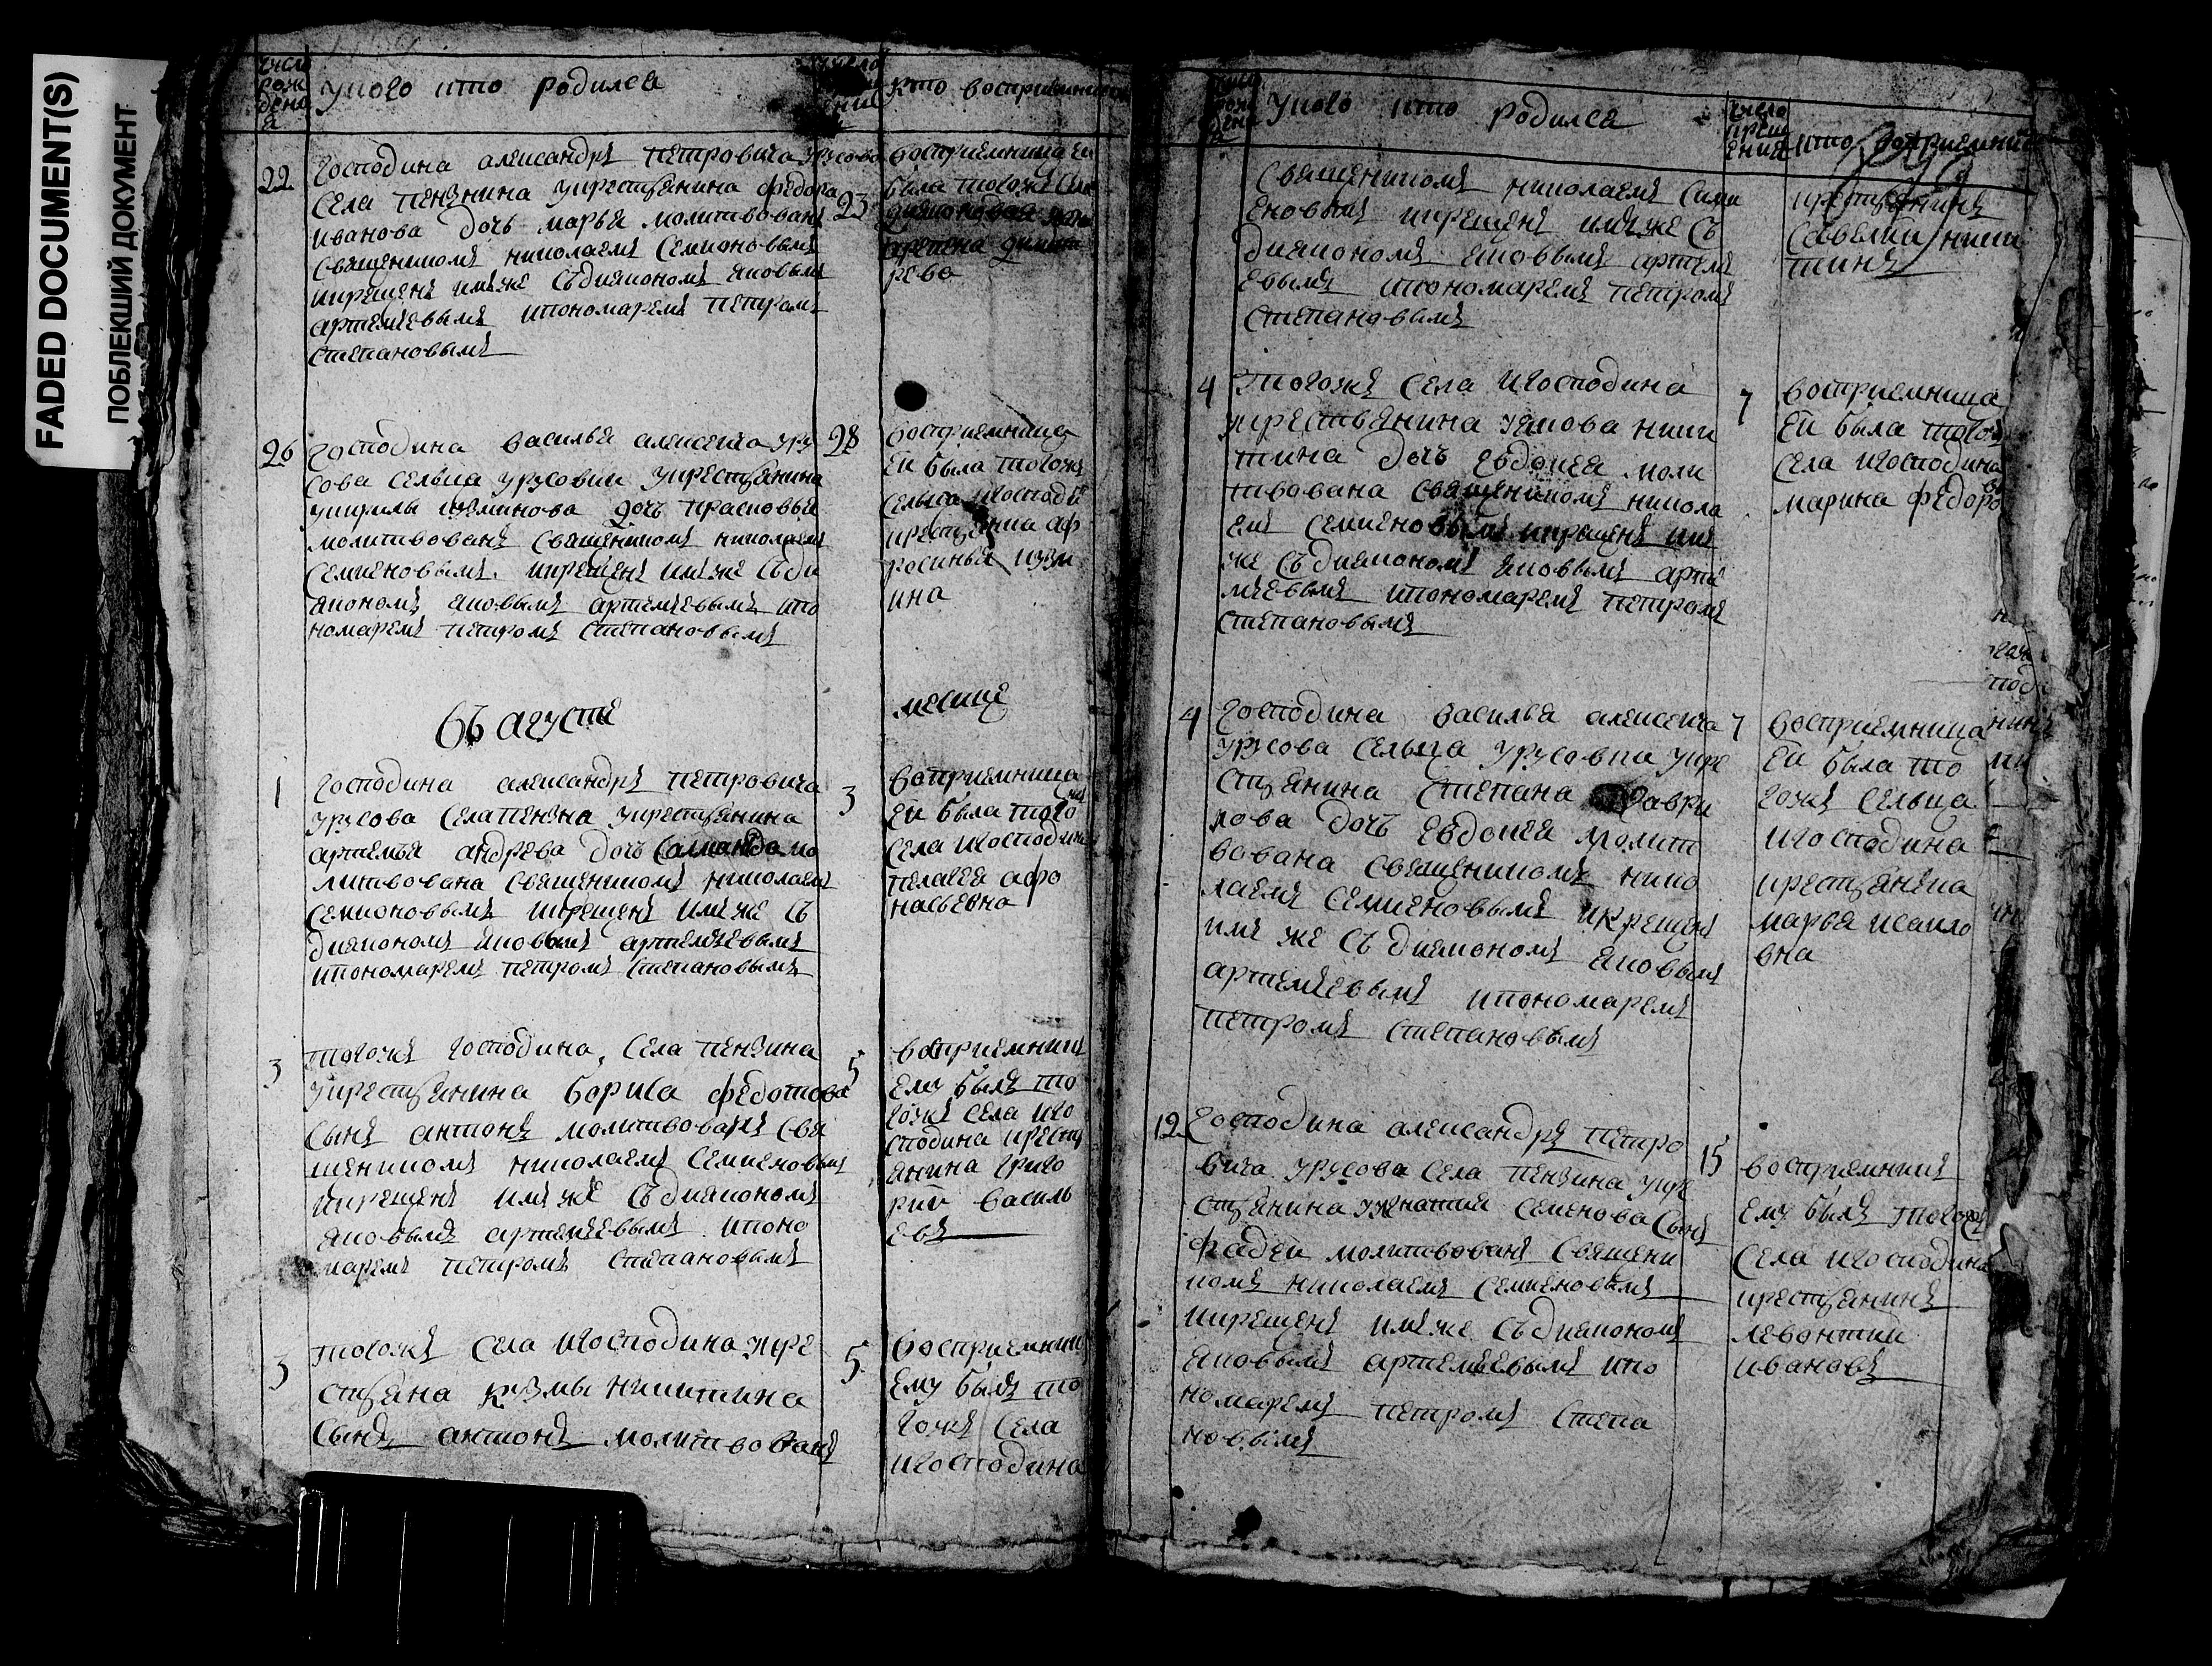 FADED DOCUMENT(S)
ПОБЛЕКШИЙ ДОКУМЕНТ
число рождения
у кого кто родился
кто восприемником
22
господина александръ петровича урусова
села пензина укрестьянина федора
иванова дочь марья молитвованъ
священикомъ николаемъ семионовымъ
икрещенъ имъже съдиякономъ яковымъ
артемьевымъ ипономаремъ петромъ
степановымъ
23
восприемница еи
была тогожъ села
рева
26
господина василья алексеича уру
сова сельца урусовки укрестьянина
укирилы дочь прасковья
молитвованъ священикомъ николаемъ
семиеновымъ икрещенъ имъже съди
якономъ яковымъ артемьевымъ ипо
номаремъ петромъ степановымъ
28
восприемница
еи была тогожъ
сельца игосподи
крестьянка аф
росинья кузми
ина
въ августе
месице
1
господина александръ петровича
урусова села пензина укрестьянина
артемья андрева дочь мо
литвована священикомъ николаемъ
семионовымъ икрещенъ имъже съ
диякономъ яковымъ артемьевымъ
ипономаремъ петромъ степановымъ
3
вотприемница
еи была того жъ
села игосподина
пелагея афо
насьевна
3
тогожъ господина села пензина
укрестьянина бориса федотова
сынъ антонъ молитвованъ свя
щеникомъ николаемъ семиеновымъ
икрещенъ имъже съдиякономъ
яковымъ артемьевымъ ипоно
маремъ петромъ степановымъ
5
вотприемникъ
ему былъ то
гожъ села иго
сподина крестъ
янина григо
рии василь
евъ
3
тогожъ села игосподина укре
стьяна кузмы никитина
сынъ антонъ молитвованъ
5
восприемникъ
ему былъ то
гожъ села
игосподина
у кого кто родился
число крещения
кто восприемник
священикомъ николаемъ сими
еновымъ икрещенъ имъже съ
диякономъ яковымъ артемъ
евымъ ипономаремъ петромъ
степановымъ
крестьянинъ
савелии ники
тинъ
4
тогожъ села игосподина
укрествянина уякова ники
тина дочь евдокея моли
твована священикомъ никола
емъ семиеновымъ икрещенъ им
же съдиякономъ яковымъ арте
мьевымъ ипономаремъ петромъ
степановымъ
7
вотприемница
еи была тогожъ
села игосподина
марина федоровa
4
господина василья алексеича
урусова сельца урусовка укре
стьянина степана гаври
лова дочь евдокея молит
вована священикомъ нико
лаемъ семиеновымъ икрещенъ
имъ же съ диякономъ яковымъ
артемьевымъ ипономаремъ
петромъ степановымъ
7
восприемница
еи была то
гожъ сельца
игосподина
крестьянка
марья исаило
вна
12
господина александръ петро
вича урусова села пензина укре
стьянина игнатия семенова сынъ
фадеи молитвованъ священи
комъ николаемъ семиеновымъ
икрещенъ имъже съдиякономъ
яковымъ артемьевымъ ипо
номаремъ петромъ степа
новымъ
15
восприемникъ
ему былъ тогожъ
села игосподина
крестьянинъ
левонтии
ивановъ